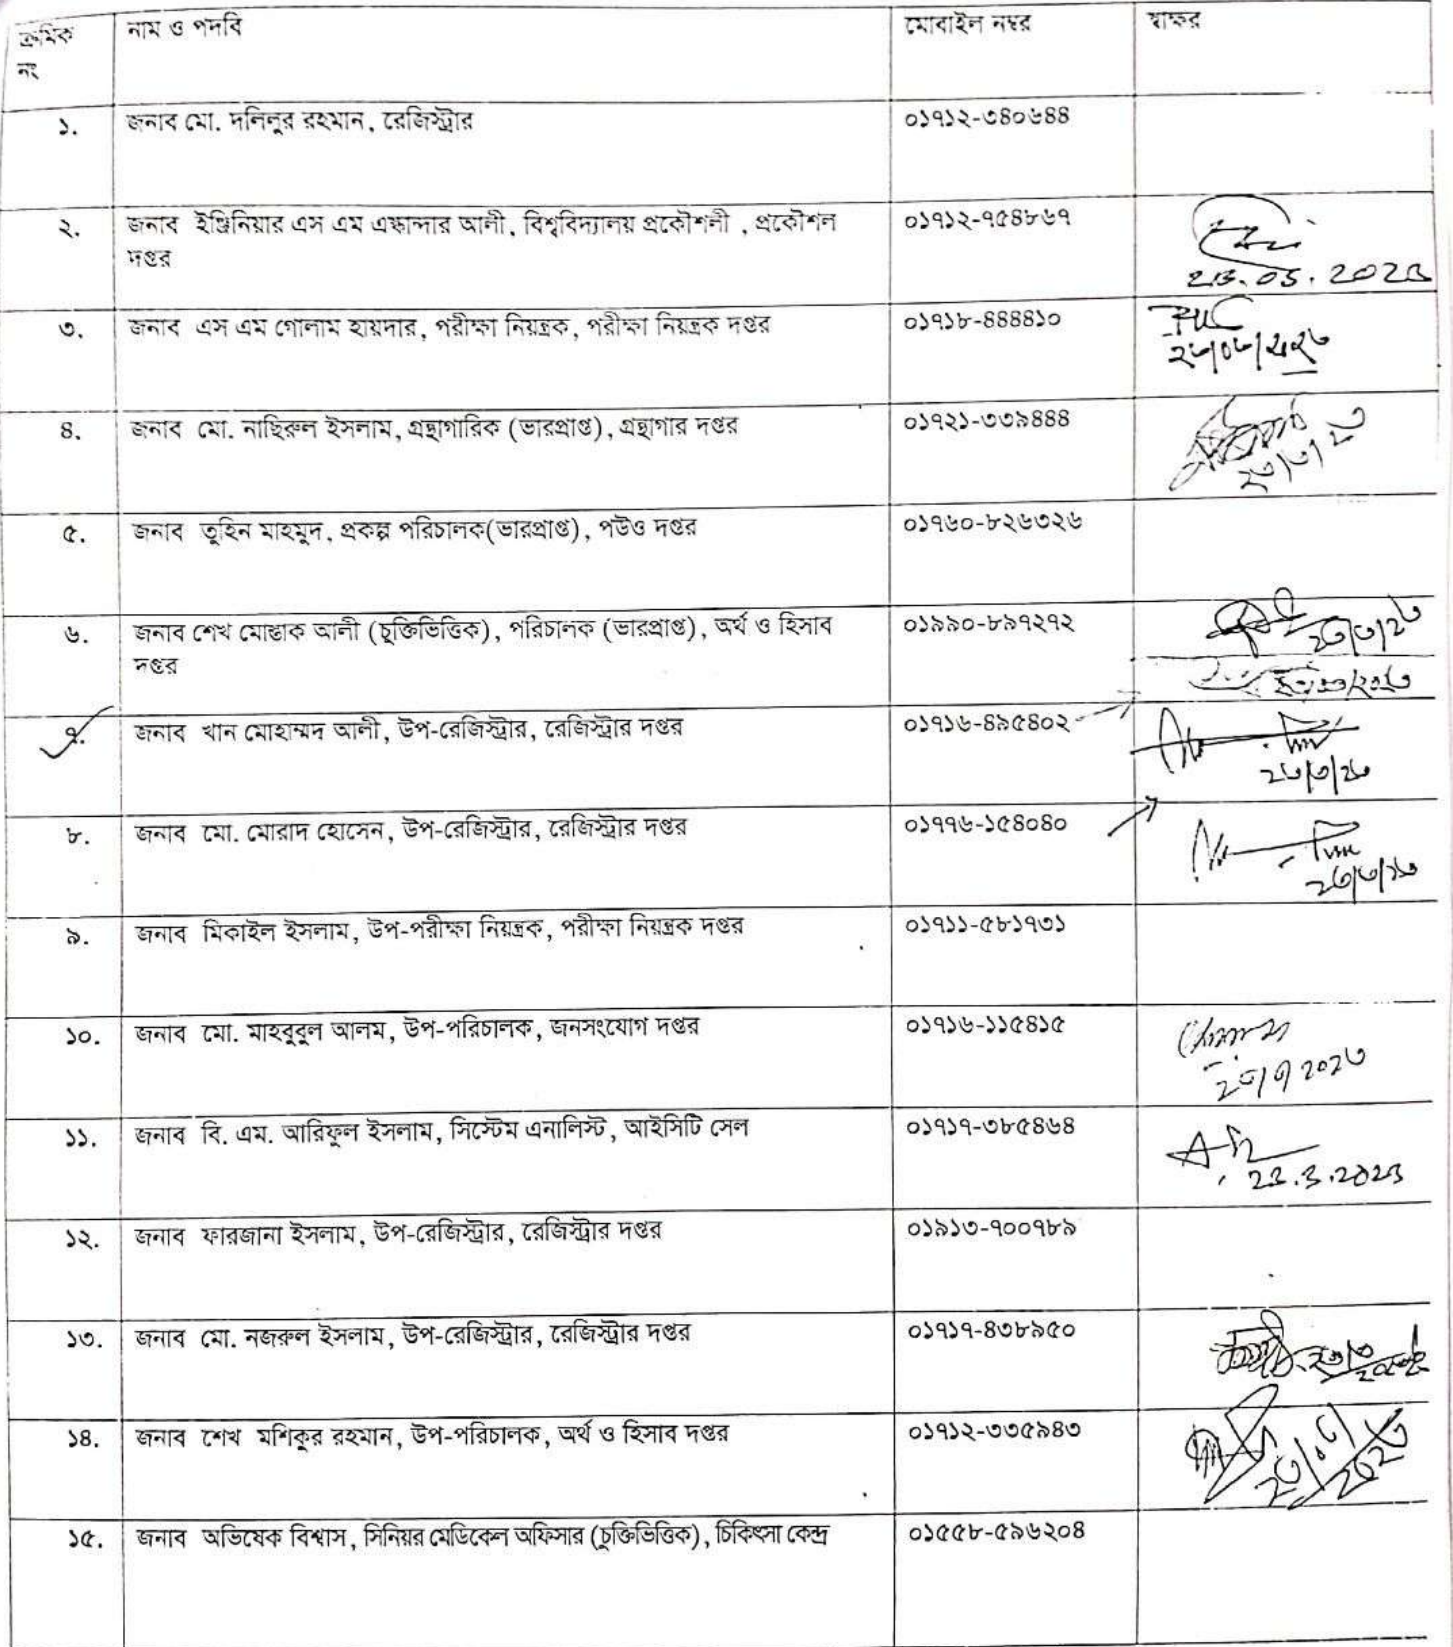 ক্রমিক নং নাম ও পদবি মোবাইল নম্বর স্বাক্ষর
১. জনাব মো. দলিলুর রহমান, রেজিস্ট্রার ০১৭১২-৩৪০৬৪৪
২. জনাব ইঞ্জিনিয়ার এস এম এস্কান্দার আলী, বিশ্ববিদ্যালয় প্রকৌশলী , প্রকৌশল ০১৭১২-৭৫৪৮৬৭
দপ্তর
৩. জনাব এস এম গোলাম হায়দার, পরীক্ষা নিয়ন্ত্রক, পরীক্ষা নিয়ন্ত্রক দপ্তর ০১৭১৮-৪৪৪৪১০
৪. জনাব মো. নাছিরুল ইসলাম, গ্রন্থাগারিক (ভারপ্রাপ্ত), গ্রন্থাগার দপ্তর ০১৭২১-৩৩৯৪৪৪
২৩/৩/২৩
৫. জনাব তুহিন মাহমুদ, প্রকল্প পরিচালক(ভারপ্রাপ্ত), পউও দপ্তর ০১৭৬০-৮২৬৩২৬
৬. জনাব শেখ মোস্তাক আলী (চুক্তিভিত্তিক), পরিচালক (ভারপ্রাপ্ত), অর্থ ও হিসাব ০১৯৯০-৮৯৭২৭২ ২৩/৩/২৩
দপ্তর
৭. জনাব খান মোহাম্মদ আলী, উপ-রেজিস্ট্রার, রেজিস্ট্রার দপ্তর ০১৭১৬-৪৯৫৪০২
২৩/৩/২৩
৮. জনাব মো. মোরাদ হোসেন, উপ-রেজিস্ট্রার, রেজিস্ট্রার দপ্তর ০১৭৭৬-১৫৪০৪০
২৩/৩/২৩
৯. জনাব মিকাইল ইসলাম, উপ-পরীক্ষা নিয়ন্ত্রক, পরীক্ষা নিয়ন্ত্রক দপ্তর ০১৭১১-৫৮১৭৩১
১০. জনাব মো. মাহবুবুল আলম, উপ-পরিচালক, জনসংযোগ দপ্তর ০১৭১৬-১১৫৪১৫
১১. জনাব বি. এম. আরিফুল ইসলাম, সিস্টেম এনালিস্ট, আইসিটি সেল ০১৭১৭-৩৮৫৪৬৪
23.3.2023
১২. জনাব ফারজানা ইসলাম, উপ-রেজিস্ট্রার, রেজিস্ট্রার দপ্তর ০১৯১৩-৭০০৭৮৯
১৩. জনাব মো. নজরুল ইসলাম, উপ-রেজিস্ট্রার, রেজিস্ট্রার দপ্তর ০১৭১৭-৪৩৮৯৫০
১৪. জনাব শেখ মশিকুর রহমান, উপ-পরিচালক, অর্থ ও হিসাব দপ্তর ০১৭১২-৩৩৫৯৪৩
১৫. জনাব অভিষেক বিশ্বাস, সিনিয়র মেডিকেল অফিসার (চুক্তিভিত্তিক), চিকিৎসা কেন্দ্র ০১৫৫৮-৫৯৬২০৪